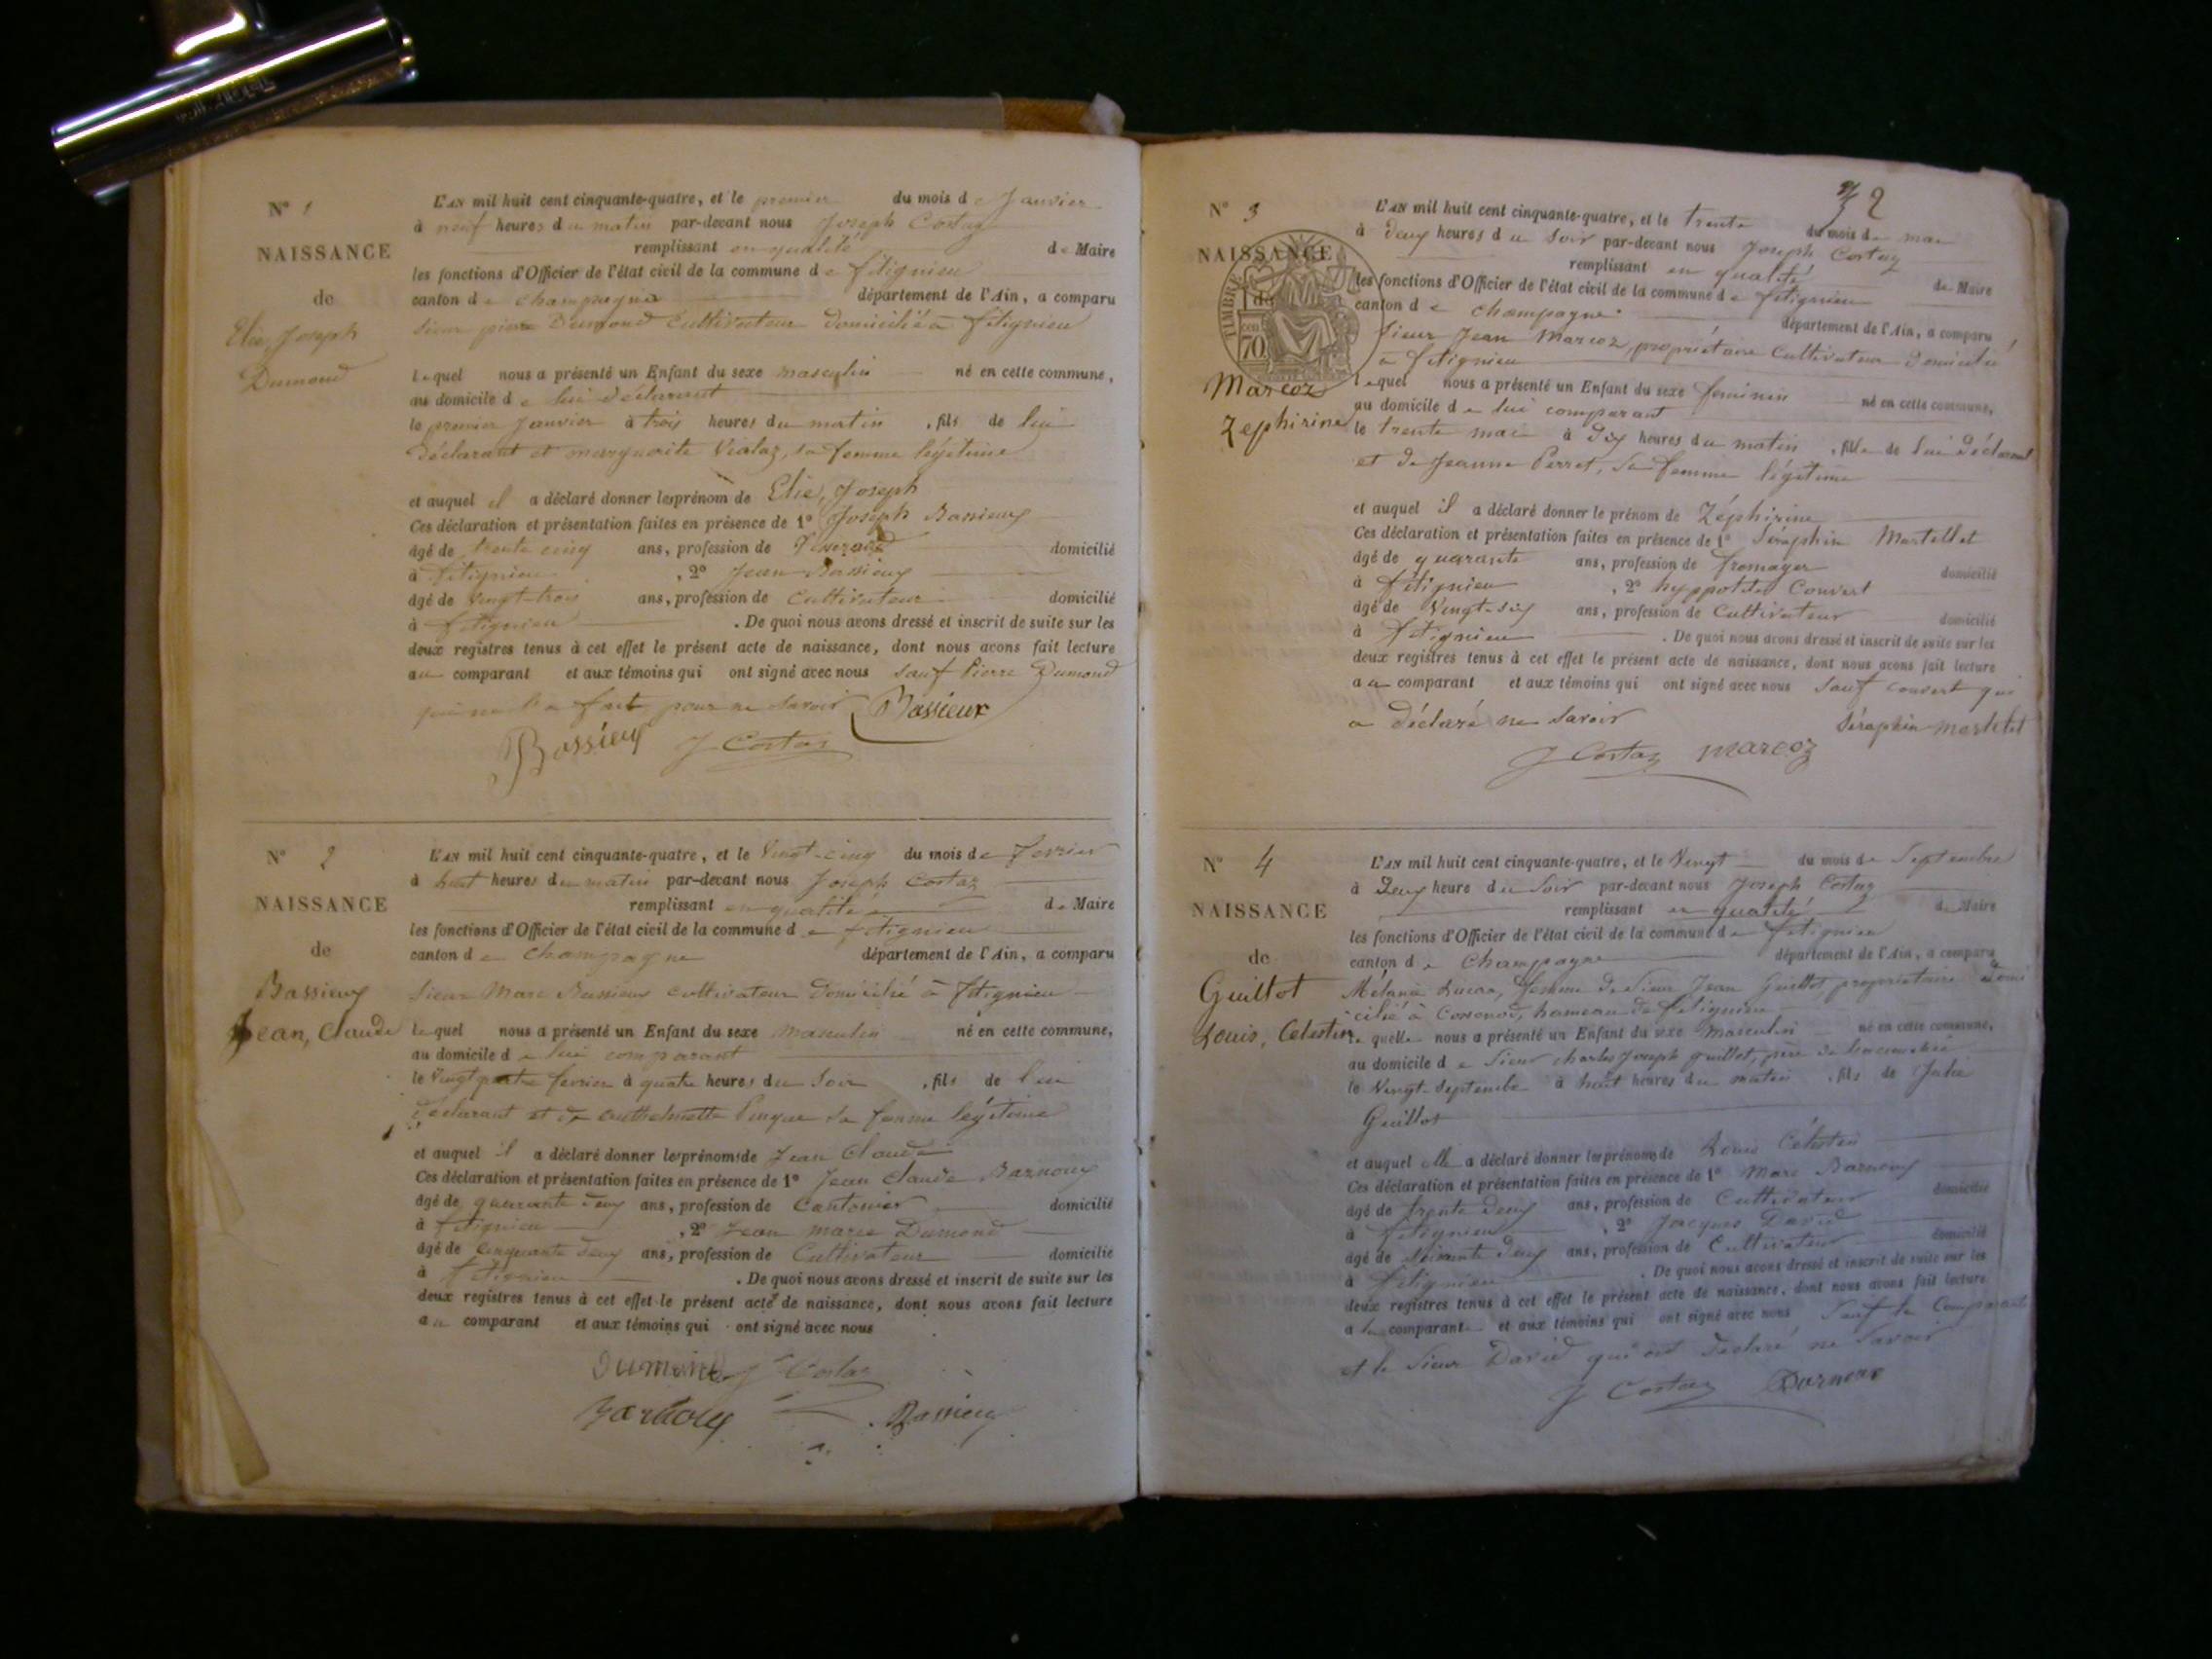 N° 1
NAISSANCE
de
Elie, Joseph
Dumond
L'AN mil huit cent cinquante-quatre, et le premier du mois de Janvier
à neuf heures du matin par-devant nous Joseph Costaz
remplissant en qualité de Maire
les fonctions d'Officier de l'état civil de la commune de fitignieu
canton de champagne département de l'Ain, a comparu
Sieur pierre Dumond Cultivateur domicilié à fitignieu
Lequel nous a présenté un Enfant du sexe masculin né en cette commune,
au domicile de lui déclarant
le premier Janvier à trois heures du matin , fils de lui
déclarant et marguerite Vialaz, sa femme légitime
et auquel il a déclaré donner les prénom de Elie, Joseph
Ces déclaration et présentation faites en présence de 1° Joseph Bassieux
âgé de trente cinq ans, profession de domicilié
à fitignieu , 2° Jean Bassieux
âgé de vingt-trois ans, profession de Cultivateur domicilié
à fitignieu . De quoi nous avons dressé et inscrit de suite sur les
deux registres tenus à cet effet le présent acte de naissance, dont nous avons fait lecture
au comparant et aux témoins qui ont signé avec nous sauf Pierre Dumond
qui ne l'a fait pour ne savoir Bassieux
Bassieux J Costaz
N° 2
NAISSANCE
de
Bassieux
Jean, Claude
L'AN mil huit cent cinquante-quatre, et le Vingt-cinq du mois de fevrier
à huit heures du matin par-devant nous Joseph Costaz
remplissant en qualité de Maire
les fonctions d'Officier de l'état civil de la commune de fitignieu
canton de Champagne département de l'Ain, a comparu
Sieur Marc Bassieux cultivateur domicilié à fitignieu
Lequel nous a présenté un Enfant du sexe masculin né en cette commune,
au domicile de lui comparant
le Vingt quatre fevrier à quatre heures du Soir , fils de lui
déclarant et de sa femme légitime
et auquel il a déclaré donner les prénoms de Jean Claude
Ces déclaration et présentation faites en présence de 1° Jean Claude Barnoux
âgé de quarante deux ans, profession de Cantonier domicilié
à fitignieu , 2° Jean marie Dumond
âgé de cinquante deux ans, profession de Cultivateur domicilié
à fitignieu . De quoi nous avons dressé et inscrit de suite sur les
deux registres tenus à cet effet le présent acte de naissance, dont nous avons fait lecture
au comparant et aux témoins qui ont signé avec nous
Dumond J Costaz
Barnoux Bassieux
2
N° 3
NAISSANCE
de
TIMBRE
70
Marcoz
Zephirine
L'AN mil huit cent cinquante-quatre, et le trente du mois de mai
à deux heures du Soir par-devant nous Joseph Costaz
remplissant en qualité de Maire
les fonctions d'Officier de l'état civil de la commune de fitignieu
canton de champagne département de l'Ain, a comparu
Sieur Jean Marcoz, propriétaire Cultivateur domicilié
à fitignieu
Lequel nous a présenté un Enfant du sexe feminin né en cette commune,
au domicile de lui comparant
le trente mai à dix heures du matin , fille de lui déclarant
et de Jeanne Perret, Sa femme légitime
et auquel il a déclaré donner le prénom de Zéphirine
Ces déclaration et présentation faites en présence de 1° Séraphin Martellet
âgé de quarante ans, profession de fromager domicilié
à fitignieu , 2° hyppolite Convert
âgé de Vingt-six ans, profession de Cultivateur domicilié
à fitignieu . De quoi nous avons dressé et inscrit de suite sur les
deux registres tenus à cet effet le présent acte de naissance, dont nous avons fait lecture
au comparant et aux témoins qui ont signé avec nous Sauf convert qui
a déclaré ne Savoir Séraphin martelet
J Costaz marcoz
N° 4
NAISSANCE
de
Guillot
Louis, Celestin
L'AN mil huit cent cinquante-quatre, et le Vingt du mois de Septembre
à Deux heure du Soir par-devant nous Joseph Costaz
remplissant en qualité de Maire
les fonctions d'Officier de l'état civil de la commune de fitignieu
canton de Champagne département de l'Ain, a comparu
Mélanie femme de Sieur Jean Guillot propriétaire domi
cilié à hameau de fitignieu
Laquelle nous a présenté un Enfant du sexe Masculin né en cette commune,
au domicile de Sieur charles Joseph guillot, père de
le Vingt Septembre à huit heures du matin , fils de Julie
Guillot
et auquel elle a déclaré donner les prénoms de Louis Célestin
Ces déclaration et présentation faites en présence de 1° Marc Barnoux
âgé de trente deux ans, profession de Cultivateur domicilié
à fitignieu , 2° Jacques David
âgé de Soixante deux ans, profession de Cultivateur domicilié
à fitignieu . De quoi nous avons dressé et inscrit de suite sur les
deux registres tenus à cet effet le présent acte de naissance, dont nous avons fait lecture
a la comparante et aux témoins qui ont signé avec nous Sauf la Comparante
et le Sieur David qui ont déclaré ne Savoir
J Costaz Barnoux